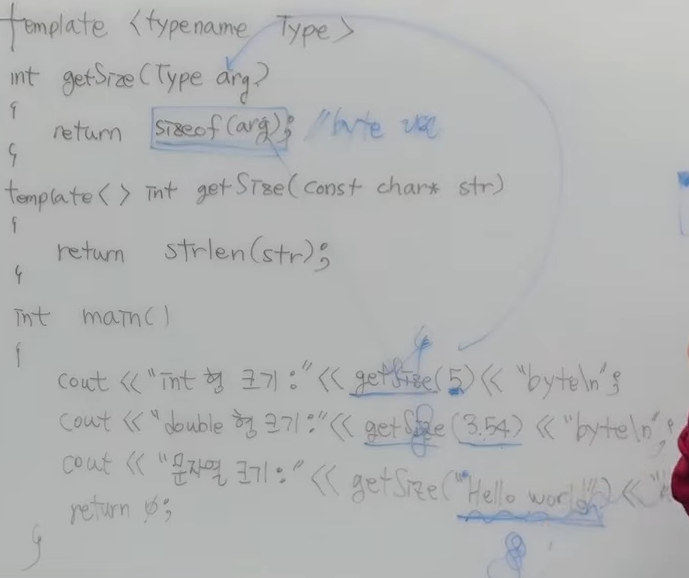 template <typename Type>
int getSize(Type arg)
{
return sizeof(arg); //byte
}
template<> int getSize(const char* str)
{
return strlen(str);
}
int main()
{
cout << "int 형 크기 :" << getSize(5) << "byte\n";
cout << "double 형 크기 :" << getSize(3.54) << "byte\n";
cout << "문자열 크기 :" << getSize("Hello world") << "
return 0;
}